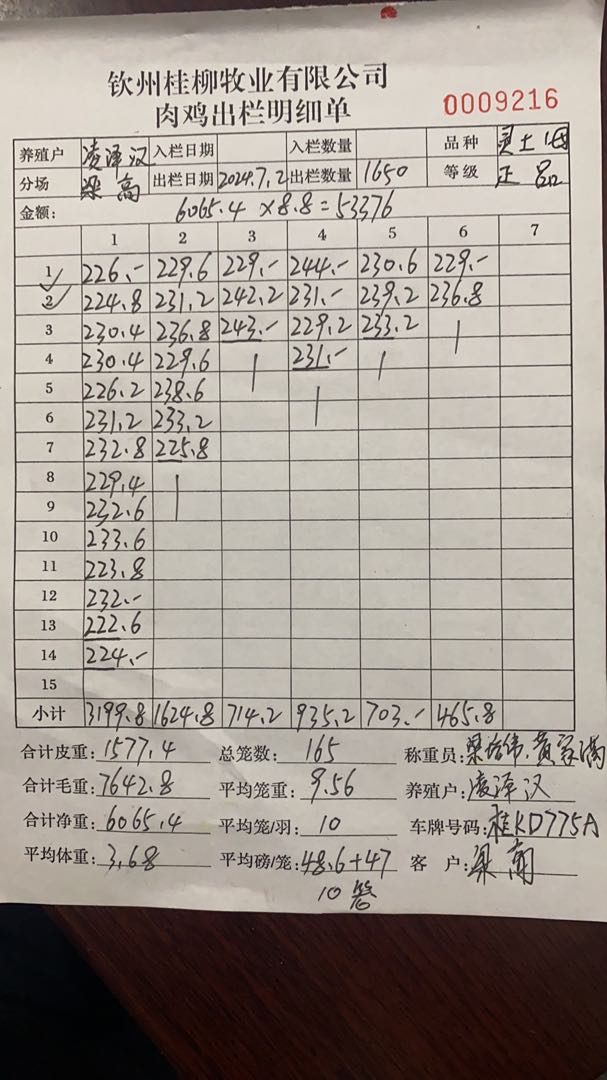 钦州桂柳牧业有限公司
肉鸡出栏明细单
0009216
养殖户 凌泽汉 入栏日期 入栏数量 品种 灵土
分场 梁高 出栏日期 2024.7.2 出栏数量 1650 等级 正品
金额: 6065.4 ×8.8=53376
1 2 3 4 5 6 7
1 226.- 229.6 229.- 244.- 230.6 229.-
2 224.8 231.2 242.2 231.- 239.2 236.8
3 230.4 236.8 243.- 229.2 233.2
4 230.4 229.6 231.-
5 226.2 238.6
6 231.2 233.2
7 232.8 225.8
8 229.4
9 232.6
10 233.6
11 223.8
12 232.-
13 222.6
14 224.-
15
小计 3199.8 1624.8 714.2 935.2 703.- 465.8
合计皮重: 1577.4 总笼数: 165 称重员:
合计毛重: 7642.8 平均笼重: 9.56 养殖户: 凌泽汉
合计净重: 6065.4 平均笼/羽: 10 车牌号码: 桂KD775A
平均体重: 3.68 平均磅/笼: 48.6+47 客 户:
10